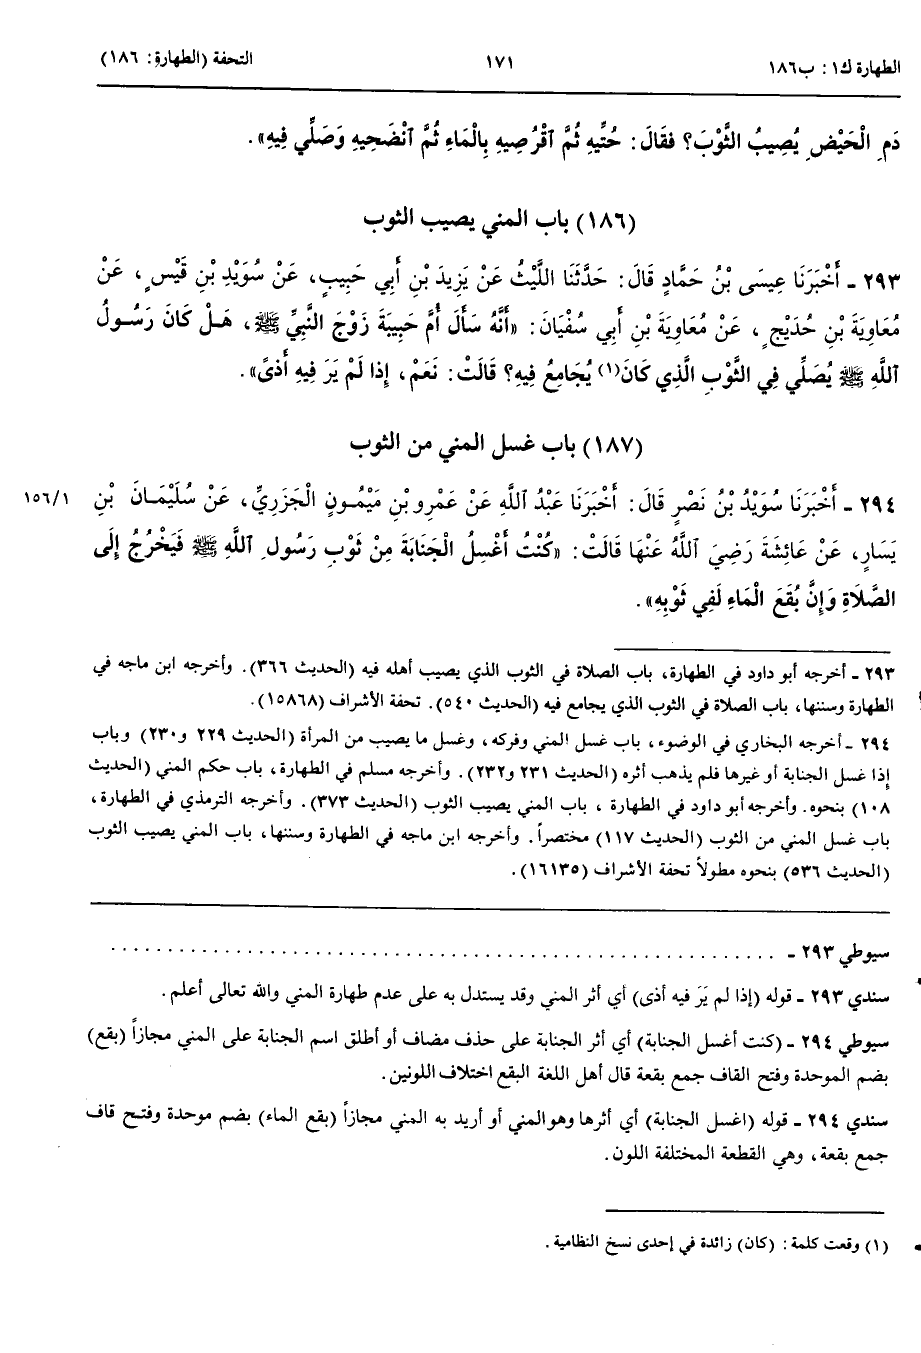 الطهارة ك١: ب١٨٦ ١٧١ التحفة (الطهارة: ١٨٦)
دَمِ الْحَيْضِ يُصِيبُ الثَّوْبَ؟ فقَالَ: حُتِّيهِ ثُمَّ ٱقْرُصِيهِ بِالْمَاءِ ثُمَّ ٱنْضَحِيهِ وَصَلِّي فِيهِ».
(١٨٦) باب المني يصيب الثوب
٢٩٣ - أَخْبَرَنَا عِيسَى بْنُ حَمَّادٍ قَالَ: حَدَّثَنَا اللَّيْثُ عَنْ يَزِيدَ بْنِ أَبِي حَبِيبٍ، عَنْ سُوَيْدِ بْنِ قَيْسٍ، عَنْ
مُعَاوِيَةَ بْنِ حُدَيْجٍ، عَنْ مُعَاوِيَةَ بْنِ أَبِي سُفْيَانَ: «أَنَّهُ سَأَلَ أُمَّ حَبِيبَةَ زَوْجَ النَّبِيِّ ﷺ، هَلْ كَانَ رَسُولُ
ٱللَّهِ ﷺ يُصَلِّي فِي الثَّوْبِ الَّذِي كَانَ(١) يُجَامِعُ فِيهِ؟ قَالَتْ: نَعَمْ، إِذَا لَمْ يَرَ فِيهِ أَذىً».
(١٨٧) باب غسل المني من الثوب
٢٩٤ - أَخْبَرَنَا سُوَيْدُ بْنُ نَصْرٍ قَالَ: أَخْبَرَنَا عَبْدُ ٱللَّهِ عَنْ عَمْرِو بْنِ مَيْمُونٍ الْجَزَرِيِّ، عَنْ سُلَيْمَانَ بْنِ ١٥٦/١
يَسَارٍ، عَنْ عَائِشَةَ رَضِيَ ٱللَّهُ عَنْهَا قَالَتْ: «كُنْتُ أَغْسِلُ الْجَنَابَةَ مِنْ ثَوْبِ رَسُولِ ٱللَّهِ ﷺ فَيَخْرُجُ إِلَى
الصَّلَاةِ وَإِنَّ بُقَعَ الْمَاءِ لَفِي ثَوْبِهِ».
٢٩٣ - أخرجه أبو داود في الطهارة، باب الصلاة في الثوب الذي يصيب أهله فيه (الحديث ٣٦٦). وأخرجه ابن ماجه في
الطهارة وسننها، باب الصلاة في الثوب الذي يجامع فيه (الحديث ٥٤٠). تحفة الأشراف (١٥٨٦٨).
٢٩٤ - أخرجه البخاري في الوضوء، باب غسل المني وفركه، وغسل ما يصيب من المرأة (الحديث ٢٢٩ و٢٣٠) وباب
إِذا غسل الجنابة أو غيرها فلم يذهب أثره (الحديث ٢٣١ و٢٣٢). وأخرجه مسلم في الطهارة، باب حكم المني (الحديث
١٠٨) بنحوه. وأخرجه أبو داود في الطهارة، باب المني يصيب الثوب (الحديث ٣٧٣). وأخرجه الترمذي في الطهارة،
باب غسل المني من الثوب (الحديث ١١٧) مختصراً. وأخرجه ابن ماجه في الطهارة وسننها، باب المني يصيب الثوب
(الحديث ٥٣٦) بنحوه مطولاً تحفة الأشراف (١٦١٣٥).
سيوطي ٢٩٣ - . . . . . . . . . . . . . . . . . . . . . . . . . . . . . . . . . . . . . . . .
سندي ٢٩٣ - قوله (إذا لم يَرَ فيه أذى) أي أثر المني وقد يستدل به على عدم طهارة المني والله تعالى أعلم.
سيوطي ٢٩٤ - (كنت أغسل الجنابة) أي أثر الجنابة على حذف مضاف أو أطلق اسم الجنابة على المني مجازاً (بقع)
بضم الموحدة وفتح القاف جمع بقعة قال أهل اللغة البقع اختلاف اللونين.
سندي ٢٩٤ - قوله (اغسل الجنابة) أي أثرها وهو المني أو أريد به المني مجازاً (بقع الماء) بضم موحدة وفتح قاف
جمع بقعة، وهي القطعة المختلفة اللون.
(١) وقعت كلمة: (كان) زائدة في إحدى نسخ النظامية.